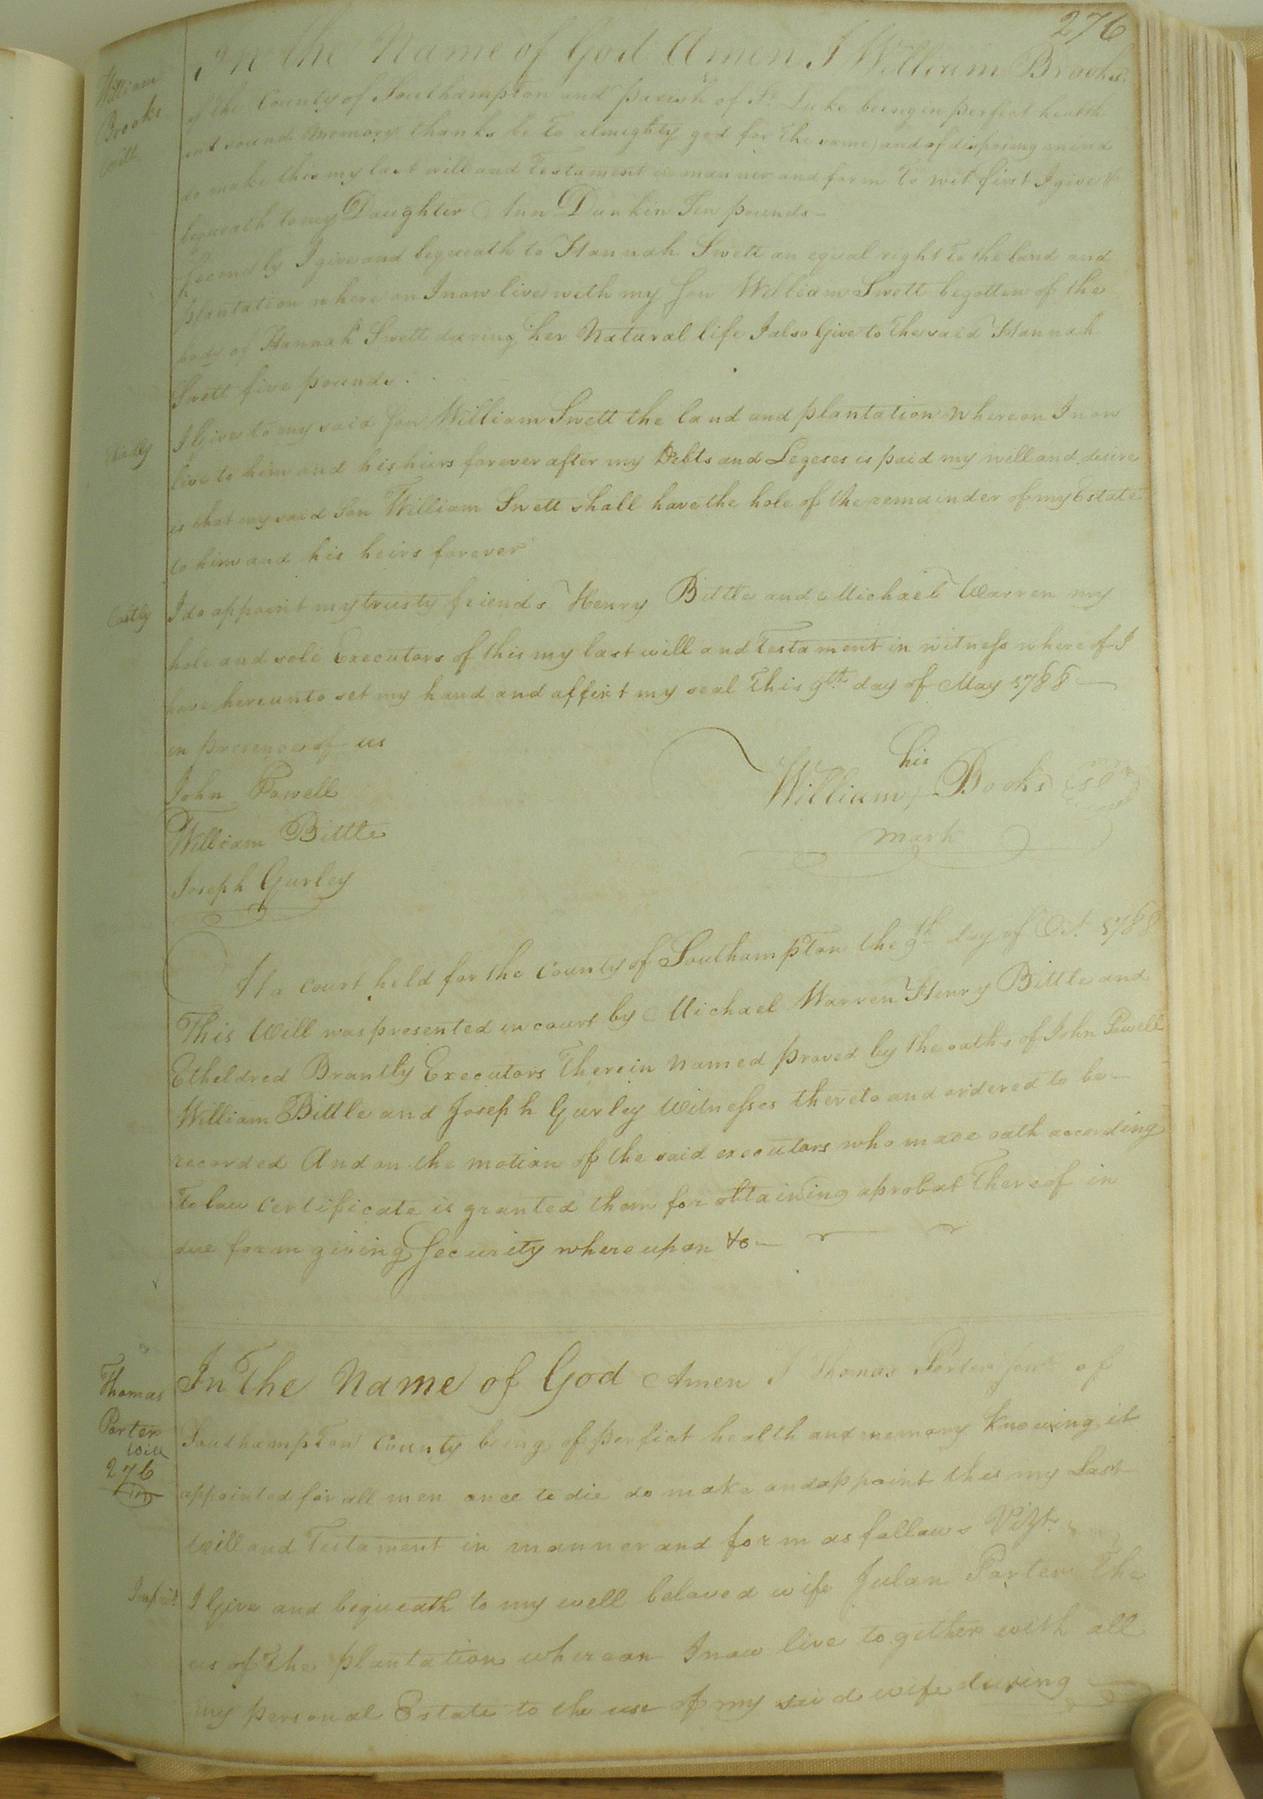 276
William Brooks will
In the Name of God Amen I William Brooks
of the County of Southampton and parish of St. Luke being in perfict health
and sound memory thanks be to almighty god for the same and of disposing mind
do make this my last will and Testament in manner and form To wit first I give &
bequeath to my Daughter Ann Dunkin Ten pounds
Secondly I give and bequeath to Hannah Swett an equal right To the land and
plantation where on I now live with my Son William Swett begotten of the
body of Hannah Swett during her Natural life I also Give to the said Hannah
Swett five pounds.
I Give to my said Son William Swett the land and plantation whereon I now
live to him and his heirs forever after my Debts and Legeses is paid my will and desire
is that my said Son William Swett shall have the hole of the remainder of my Estate
to him and his heirs forever
Lastly I do appoint my trusty friends Henry Bittle and Michael Warren my
hole and sole Executors of this my last will and Testament in witness where of I
have hereunto set my hand and affixt my seal This 9th day of May 1788
in presence of us
his
John Powell
William Books
mark
William Bittle
Joseph Gurley
At a court held for the County of Southampton the 9th day of Oct. 1788
This Will was presented in court by Michael Warren Henry Bittle and
Etheldred Brantly Executors Therein Named proved by the oaths of John Powell
William Bittle and Joseph Gurley Witnesses thereto and ordered to be
recorded And on the motion of the said executors who made oath according
To law Certificate is granted them for obtaining a probat Thereof in
due form giving Security whereupon &c
Thomas Porter will 276
In The Name of God Amen I Thomas Porter Senr. of
Southampton County being of perfict health and memory knowing it
appointed for all men once to die do make and appoint this my Last
Will and Testament in manner and form as follows Vizt.
I Give and bequeath to my well beloved wife Julan Porter The
us of The plantation whereon I now live together with all
my personal Estate to the use of my said wife during